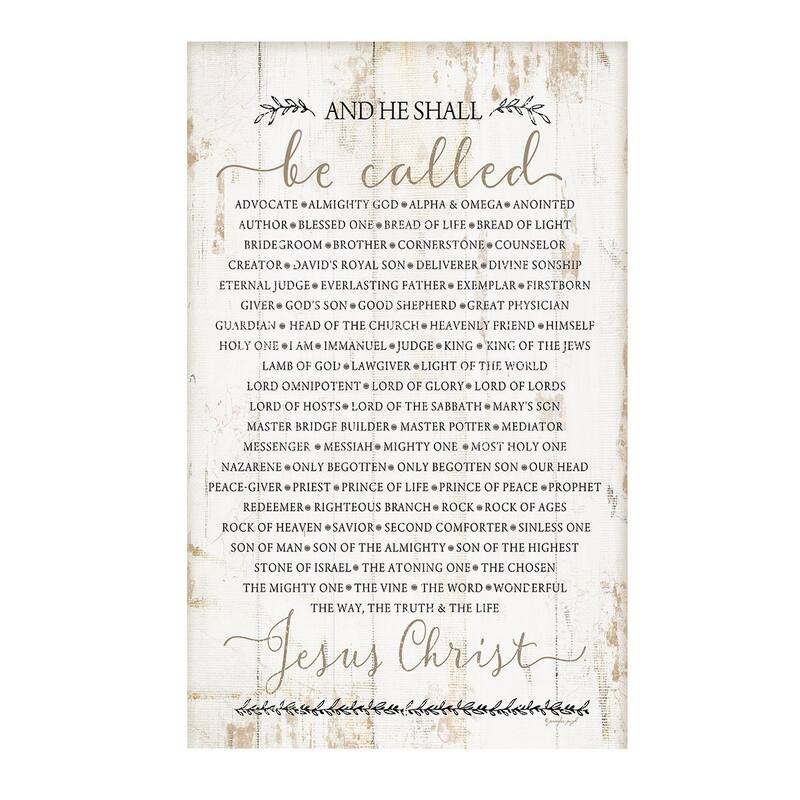 AND HE SHALL
be called
ADVOCATE • ALMIGHTY GOD • ALPHA & OMEGA • ANOINTED
AUTHOR • BLESSED ONE • BREAD OF LIFE • BREAD OF LIGHT
BRIDEGROOM • BROTHER • CORNERSTONE • COUNSELOR
CREATOR • DAVID'S ROYAL SON • DELIVERER • DIVINE SONSHIP
ETERNAL JUDGE • EVERLASTING FATHER • EXEMPLAR • FIRSTBORN
GIVER • GOD'S SON • GOOD SHEPHERD • GREAT PHYSICIAN
GUARDIAN • HEAD OF THE CHURCH • HEAVENLY FRIEND • HIMSELF
HOLY ONE • I AM • IMMANUEL • JUDGE • KING • KING OF THE JEWS
LAMB OF GOD • LAWGIVER • LIGHT OF THE WORLD
LORD OMNIPOTENT • LORD OF GLORY • LORD OF LORDS
LORD OF HOSTS • LORD OF THE SABBATH • MARY'S SON
MASTER BRIDGE BUILDER • MASTER POTTER • MEDIATOR
MESSENGER • MESSIAH • MIGHTY ONE • MOST HOLY ONE
NAZARENE • ONLY BEGOTTEN • ONLY BEGOTTEN SON • OUR HEAD
PEACE-GIVER • PRIEST • PRINCE OF LIFE • PRINCE OF PEACE • PROPHET
REDEEMER • RIGHTEOUS BRANCH • ROCK • ROCK OF AGES
ROCK OF HEAVEN • SAVIOR • SECOND COMFORTER • SINLESS ONE
SON OF MAN • SON OF THE ALMIGHTY • SON OF THE HIGHEST
STONE OF ISRAEL • THE ATONING ONE • THE CHOSEN
THE MIGHTY ONE • THE VINE • THE WORD • WONDERFUL
THE WAY, THE TRUTH & THE LIFE
Jesus Christ